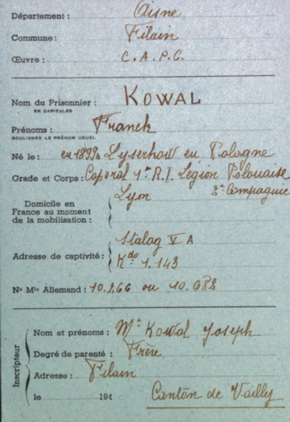 Département : Aisne
Commune : Filain
Œuvre : C.A.P.G.
Nom du Prisonnier : KOWAL
EN CAPITALES
Prénoms : Franck
SOULIGNER LE PRÉNOM USUEL
Né le : en 1899 à Lyserhow en Pologne
Grade et Corps : Caporal 1er R.I. Légion Polonaise
Domicile en Lyon 8e Compagnie
France au moment
de la mobilisation :
Stalag V A
Adresse de captivité : Kdo 1.143
No Mle Allemand : 10.266 ou 10.082
Nom et prénoms : Mr Kowal Joseph
Degré de parenté : Frère
Inscripteur
Adresse : Filain
le 194 Canton de Vailly